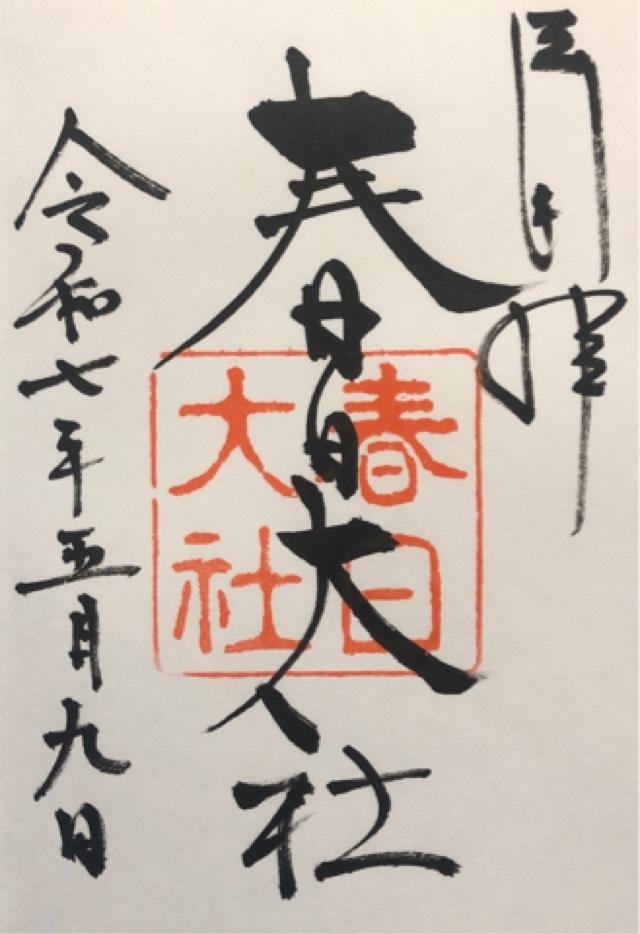 春日大社
令和七年五月九日
春日
大社